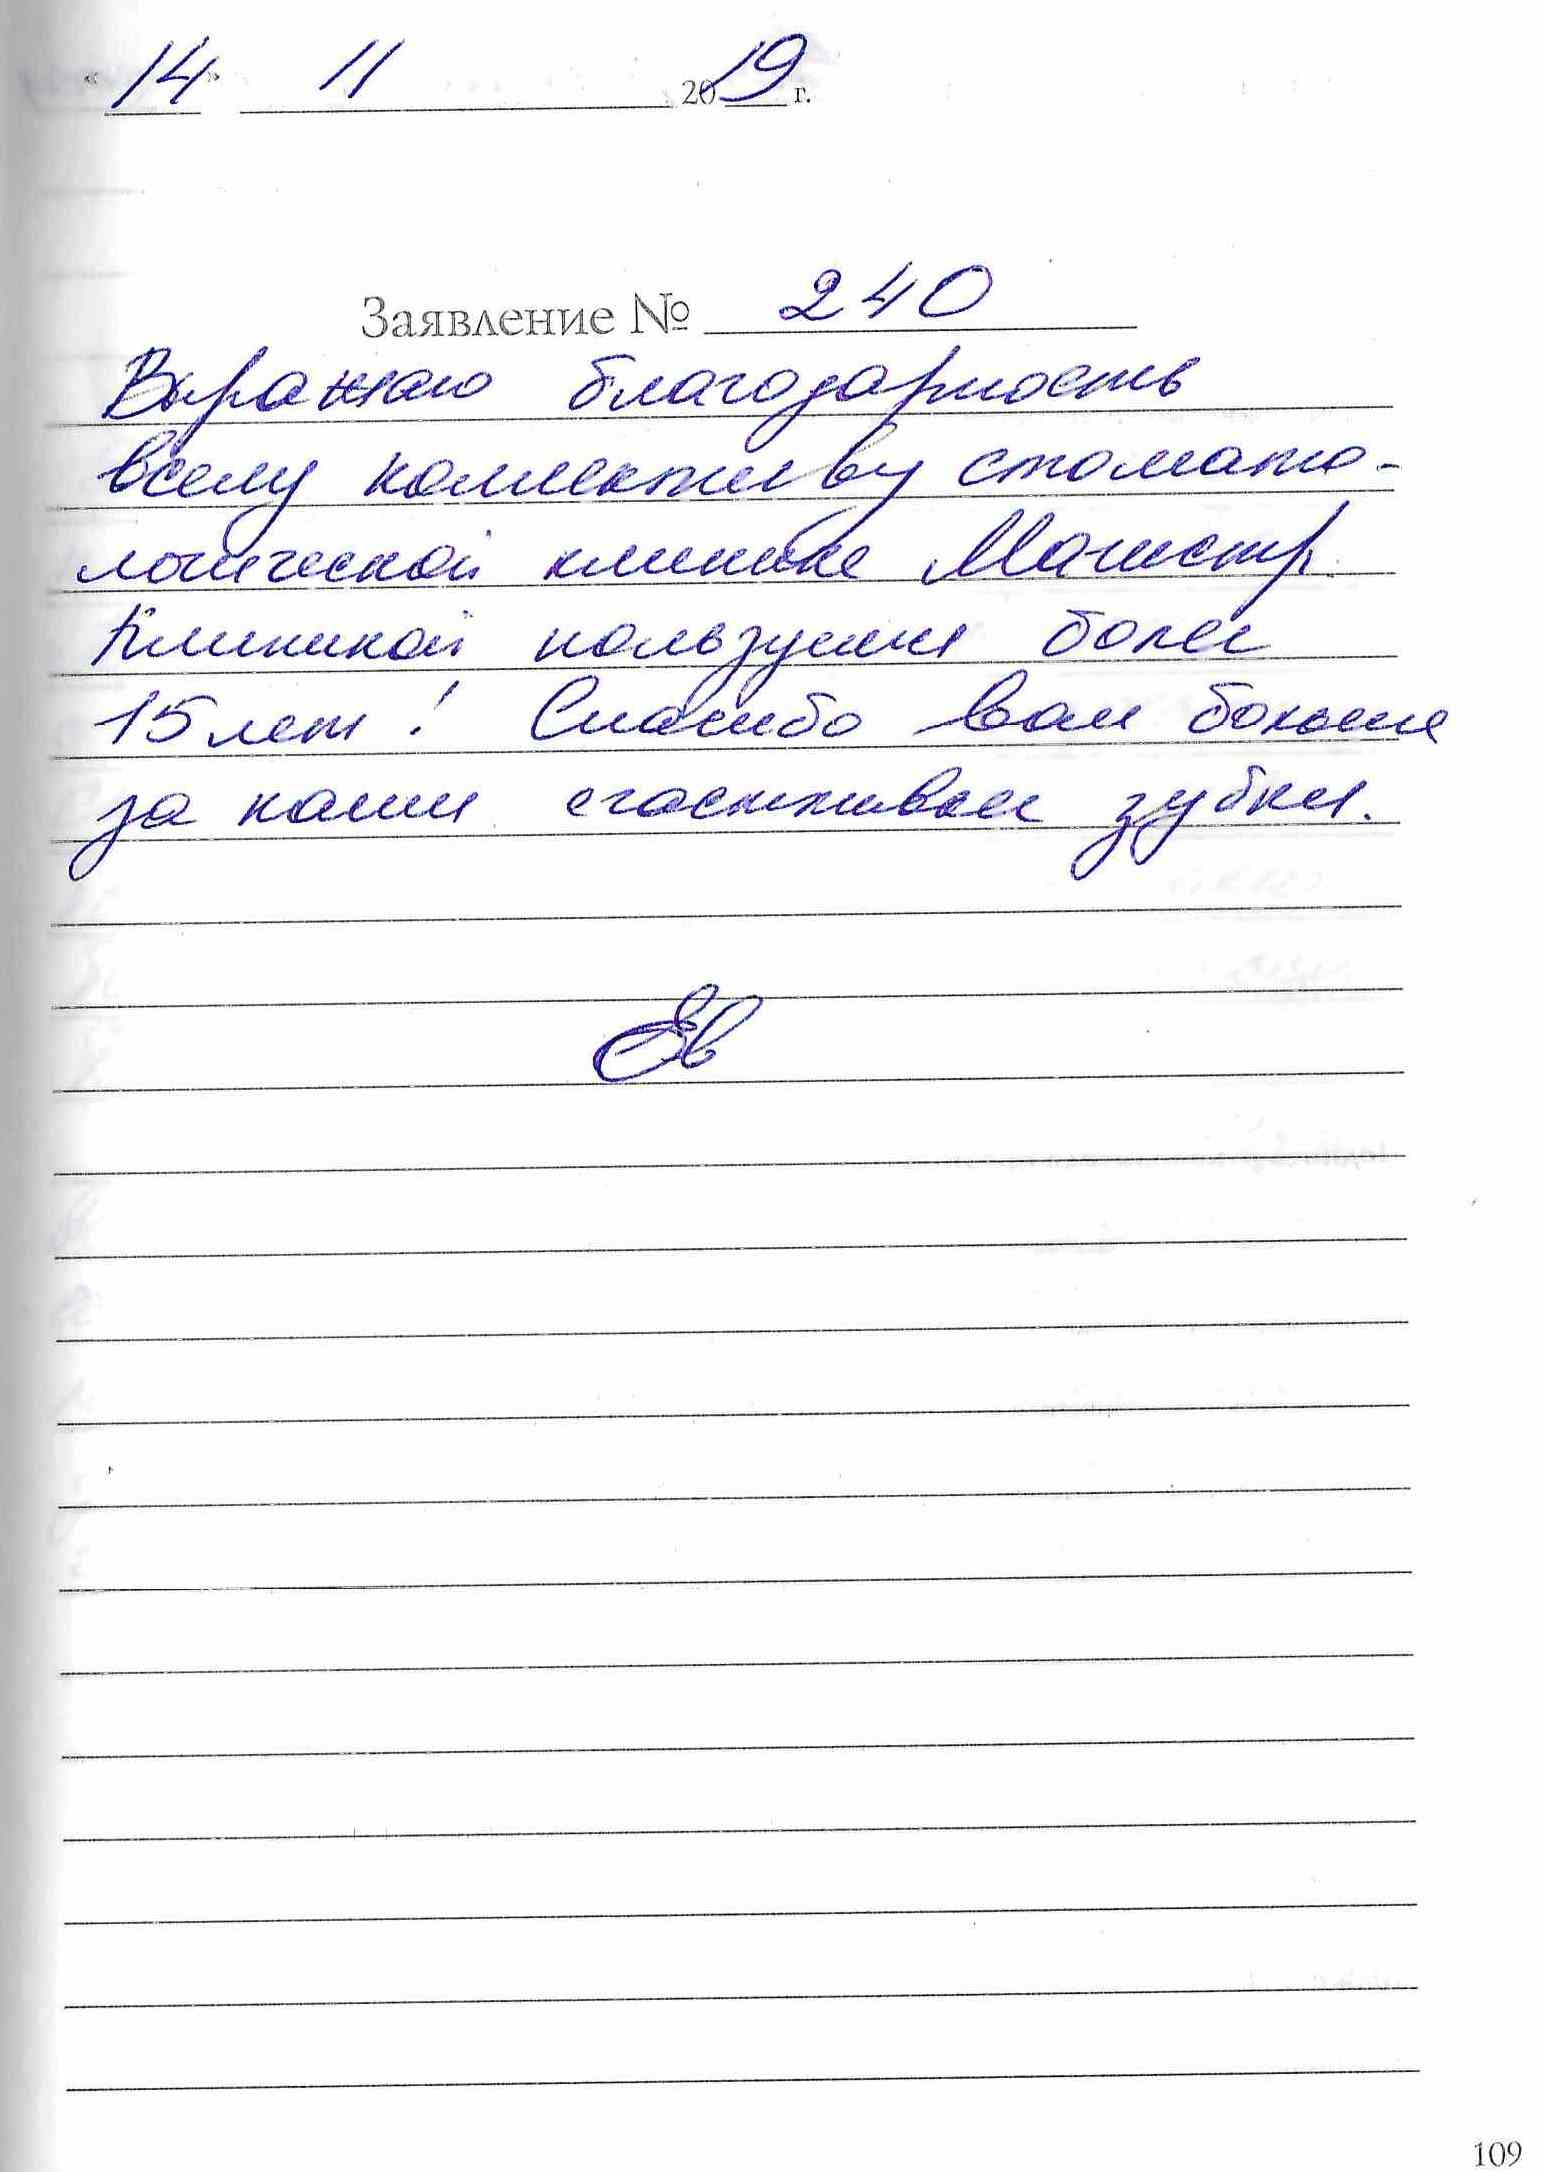 «14» 11 2019 г.
Заявление № 240
Выражаю благодарность
всему коллективу стомато-
логической клинике Магистр.
Клиникой пользуемся более
15 лет! Спасибо вам большое
за наши счастливые зубки.
109